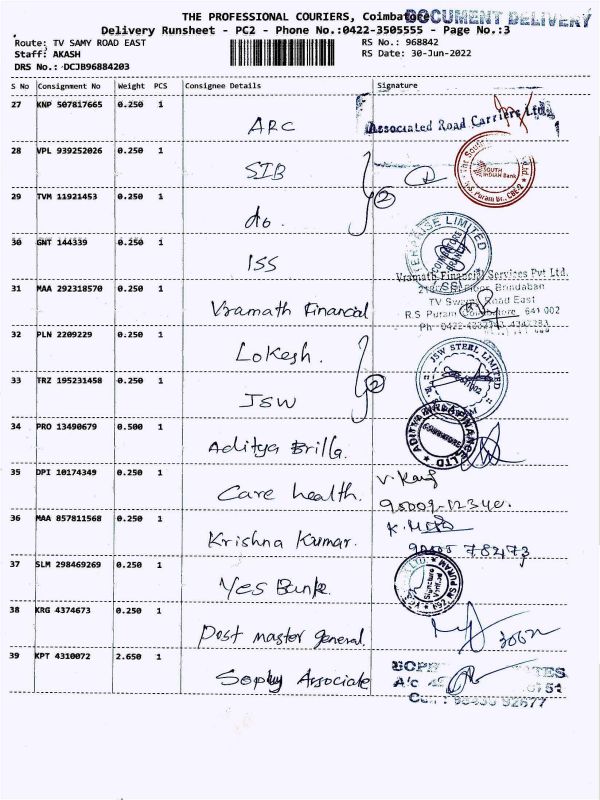 THE PROFESSIONAL COURIERS, Coimbatore
DOCUMENT DELIVERY
Delivery Runsheet - PC2 - Phone No.:0422-3505555 - Page No.:3
Route: TV SAMY ROAD EAST
RS No.: 968842
Staff: AKASH
RS Date: 30-Jun-2022
DRS No.: DCJB96884203
S No Consignment No Weight PCS Consignee Details Signature
27 KNP 507817665 0.250 1 ARC
Associated Road Carriers Ltd.
28 VPL 939252026 0.250 1 SIB
SOUTH
INDIAN Bank
2
29 TVM 11921453 0.250 1 do.
30 GNT 144339 0.250 1 ISS
31 MAA 292318570 0.250 1 Vramath Financial
Vramath Financial Services Pvt Ltd.
Brindaban
TV Swamy Road East
R.S Puram Coimbatore 641 002
32 PLN 2209229 0.250 1 Lokesh.
JSW STEEL LIMITED
2
33 TRZ 195231458 0.250 1 JSW
34 PRO 13490679 0.500 1 Aditya Brilla.
COIMBATORE
35 DPI 10174349 0.250 1 Care health.
36 MAA 857811568 0.250 1 Krishna Kumar.
37 SLM 298469269 0.250 1 Yes Bank.
Signature
Verified
38 KRG 4374673 0.250 1 Post master general.
39 KPT 4310072 2.650 1 Sophy Associate